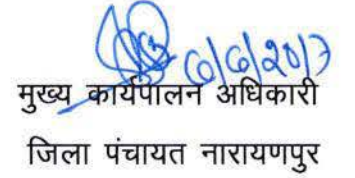 6/6/2017
मुख्य कार्यपालन अधिकारी
जिला पंचायत नारायणपुर